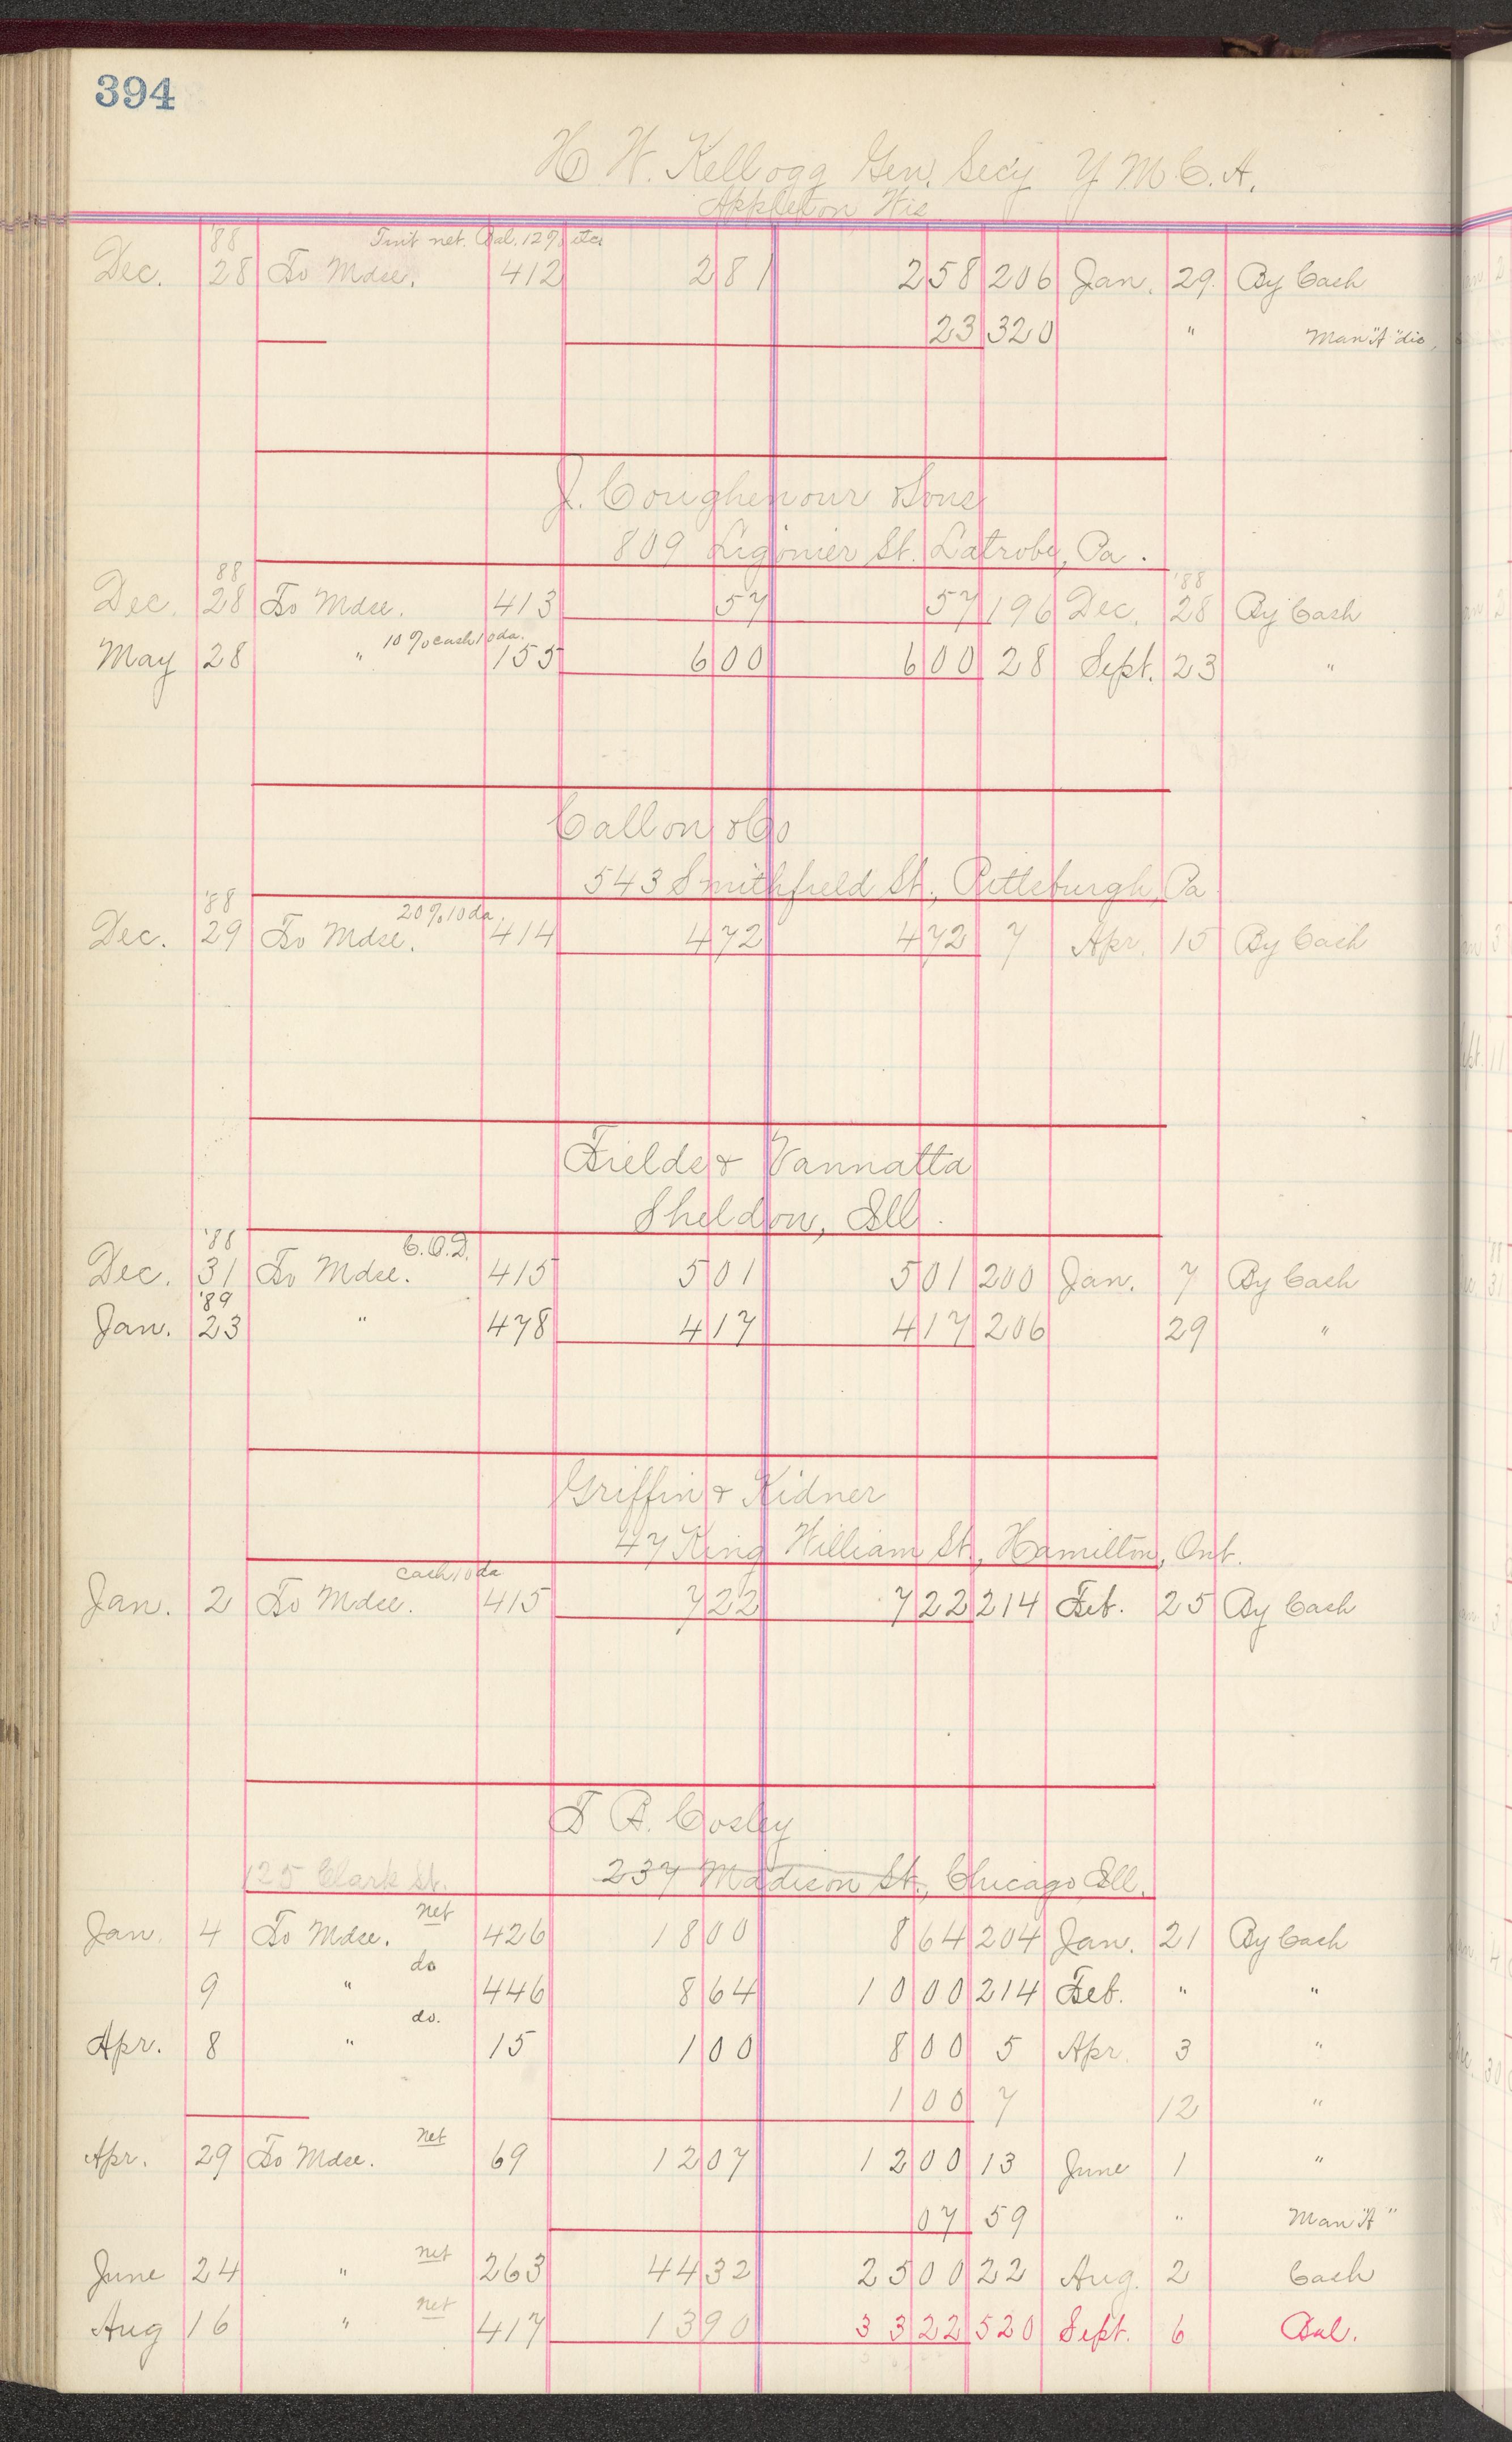 394
H W. Kellogg Gen. Secy Y M C. A.
Appleton Wis
'88
net. Bal. 12%
Dec. 28 To Mdse. 412 2 81 2 58 206 Jan. 29. By Cash
23 320 " Man "A" dis.
J. Coughenour & Sons
809 Ligonier St. Latrobe, Pa.
88 '88
Dec. 28 To Mdse. 413 57 57 196 Dec. 28 By Cash
10% cash 10 da.
May 28 " 155 6 00 6 00 28 Sept. 23 "
Callon & Co
543 Smithfield St., Pittsburgh, Pa
'88
20% 10 da.
Dec. 29 To Mdse. 414 4 72 4 72 7 Apr. 15 By Cash
Fields & Vannatta
Sheldon, Ill.
'88
C.O.D.
Dec. 31 To Mdse. 415 5 01 5 01 200 Jan. 7 By Cash
'89
Jan. 23 " 478 4 17 4 17 206 29 "
Griffin & Kidner
47 King William St., Hamilton, Ont.
Cash 10 da
Jan. 2 To Mdse. 415 7 22 7 22 214 Feb. 25 By Cash
F B. Cosley
125 Clark St. 237 Madison St., Chicago Ill.
net
Jan. 4 To Mdse. 426 18 00 8 64 204 Jan. 21 By Cash
do
9 " 446 8 64 10 00 214 Feb. " "
do.
Apr. 8 " 15 1 00 8 00 5 Apr. 3 "
1 00 7 12 "
net
Apr. 29 To Mdse. 69 12 07 12 00 13 June 1 "
07 59 " Man "A"
net
June 24 " 263 44 32 25 00 22 Aug. 2 Cash
net
Aug 16 " 417 13 90 33 22 520 Sept. 6 Bal.